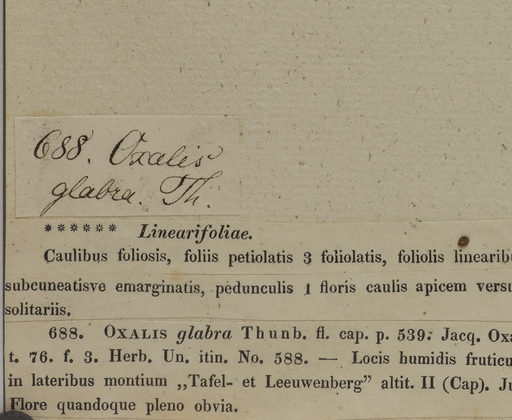 688. Oxalis
glabra. Th.
****** Linearifoliae.
Caulibus foliosis, foliis petiolatis 3 foliolatis, foliolis linearib
subcuneatisve emarginatis, pedunculis 1 floris caulis apicem versu
solitariis.
688. OXALIS glabra Thunb. fl. cap. p. 539. Jacq. Oxa
t. 76. f. 3. Herb. Un. itin. No. 588. — Locis humidis fruticu
in lateribus montium „Tafel- et Leeuwenberg” altit. II (Cap). Ju
Flore quandoque pleno obvia.